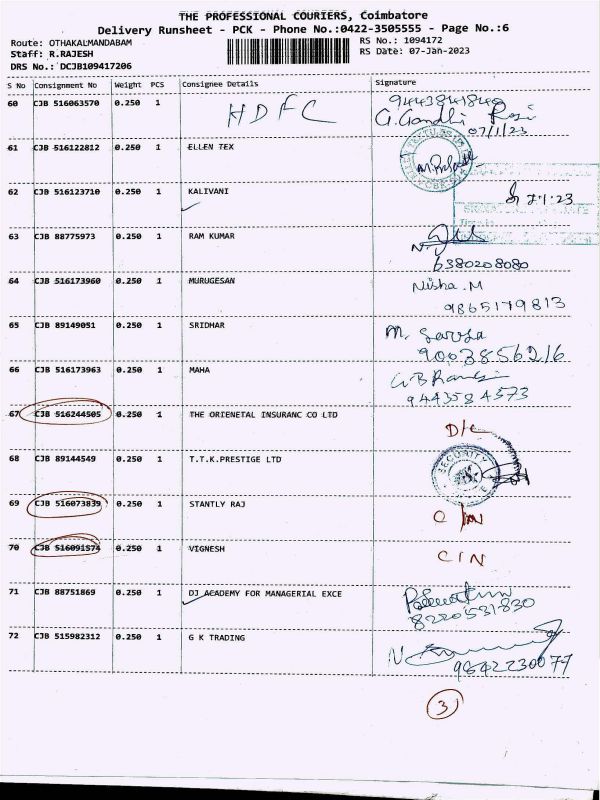 THE PROFESSIONAL COURIERS, Coimbatore
Delivery Runsheet - PCK - Phone No.:0422-3505555 - Page No.:6
Route: OTHAKALMANDABAM RS No.: 1094172
Staff: R.RAJESH RS Date: 07-Jan-2023
DRS No.: DCJB109417206
S No Consignment No Weight PCS Consignee Details Signature
60 CJB 516063570 0.250 1 HDFC 9443841840
G.Gandhi
07/1/23
61 CJB 516122812 0.250 1 ELLEN TEX
62 CJB 516123710 0.250 1 KALIVANI 7.1.23
63 CJB 88775973 0.250 1 RAM KUMAR
6380208080
64 CJB 516173960 0.250 1 MURUGESAN Nisha.M
9865179813
65 CJB 89149051 0.250 1 SRIDHAR M.
9003856216
66 CJB 516173963 0.250 1 MAHA
9443584573
67 CJB 516244505 0.250 1 THE ORIENETAL INSURANC CO LTD D/L
68 CJB 89144549 0.250 1 T.T.K.PRESTIGE LTD SECURITY
69 CJB 516073839 0.250 1 STANTLY RAJ C/N
70 CJB 516091574 0.250 1 VIGNESH C/N
71 CJB 88751869 0.250 1 DJ ACADEMY FOR MANAGERIAL EXCE
8220531830
72 CJB 515982312 0.250 1 G K TRADING N
9842230077
3